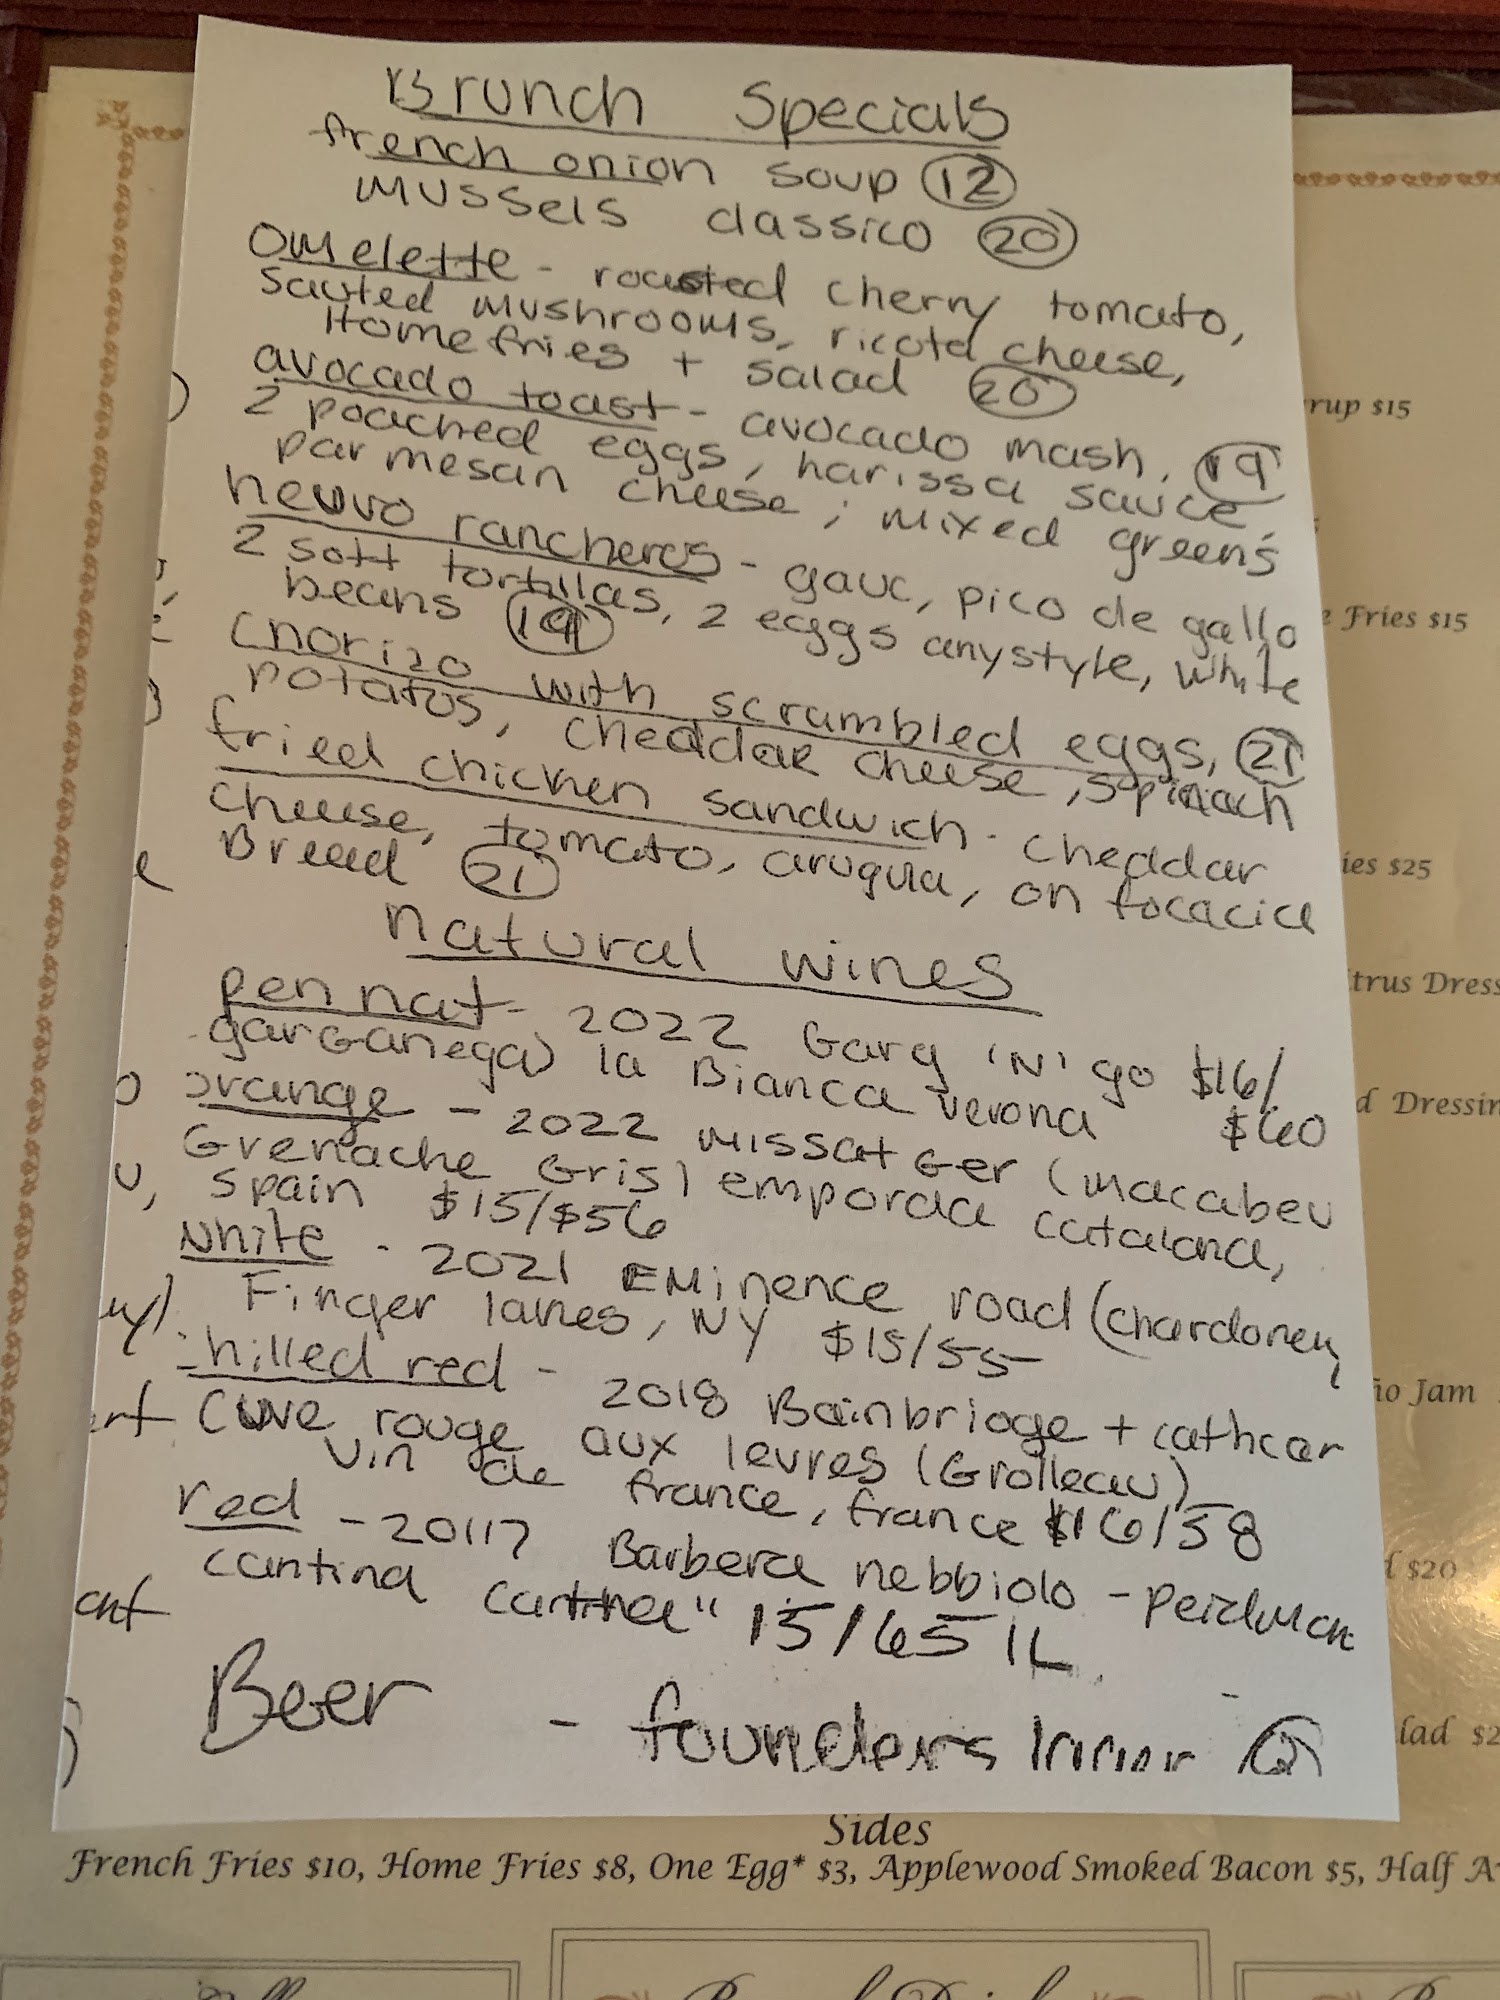 Brunch Specials
french onion soup 12
mussels classico 20
Omelette - roasted cherry tomato,
Sauted mushrooms, ricota cheese,
Home fries + salad 20
avocado toast - avocado mash, 19
2 poached eggs, harissa sauce,
parmesan cheese, mixed greens
heuvo rancheros - gauc, pico de gallo
2 soft tortillas, 2 eggs anystyle, white
beans 19
chorizo with scrambled eggs, 21
potatos, cheddar cheese, spinach
fried chicken sandwich - cheddar
cheese, tomato, arugula, on focacica
Bread 21
natural wines
pen nat - 2022 Garg 'N' go $16/
garganega) la Bianca verona $60
orange - 2022 missatger (macabeu
Grenache Gris) emporda catalana,
Spain $15/$56
White - 2021 Eminence road (chardoney
Finger lakes, NY $15/55
chilled red - 2018 Bainbridge + cathcar
Cuve rouge aux levres (Grolleau)
vin de france, france $16/58
red - 2017 Barbera nebbiolo -
cantina 15/65 1L
Beer - founders
rup $15
e Fries $15
ies $25
trus Dress
d Dressin
ño Jam
d $20
lad $2
Sides
French Fries $10, Home Fries $8, One Egg* $3, Applewood Smoked Bacon $5, Half A